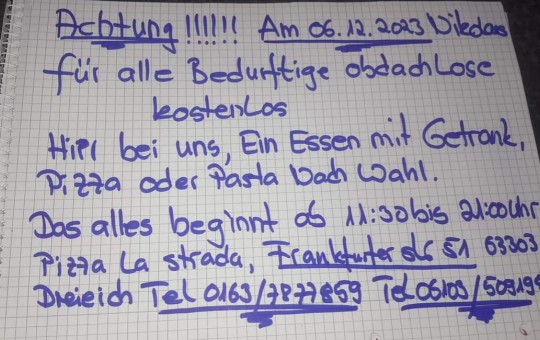 Achtung !!!!!! Am 06.12.2023 Nikolaus
für alle Bedurftige obdachlose
kostenlos
Hier bei uns, Ein Essen mit Getränk,
Pizza oder Pasta Nach Wahl.
Das alles beginnt ab 11:30 bis 21:00 Uhr
Pizza La strada, Frankfurter str 51 63303
Dreieich Tel 0163/7877859 Tel 06103/509199